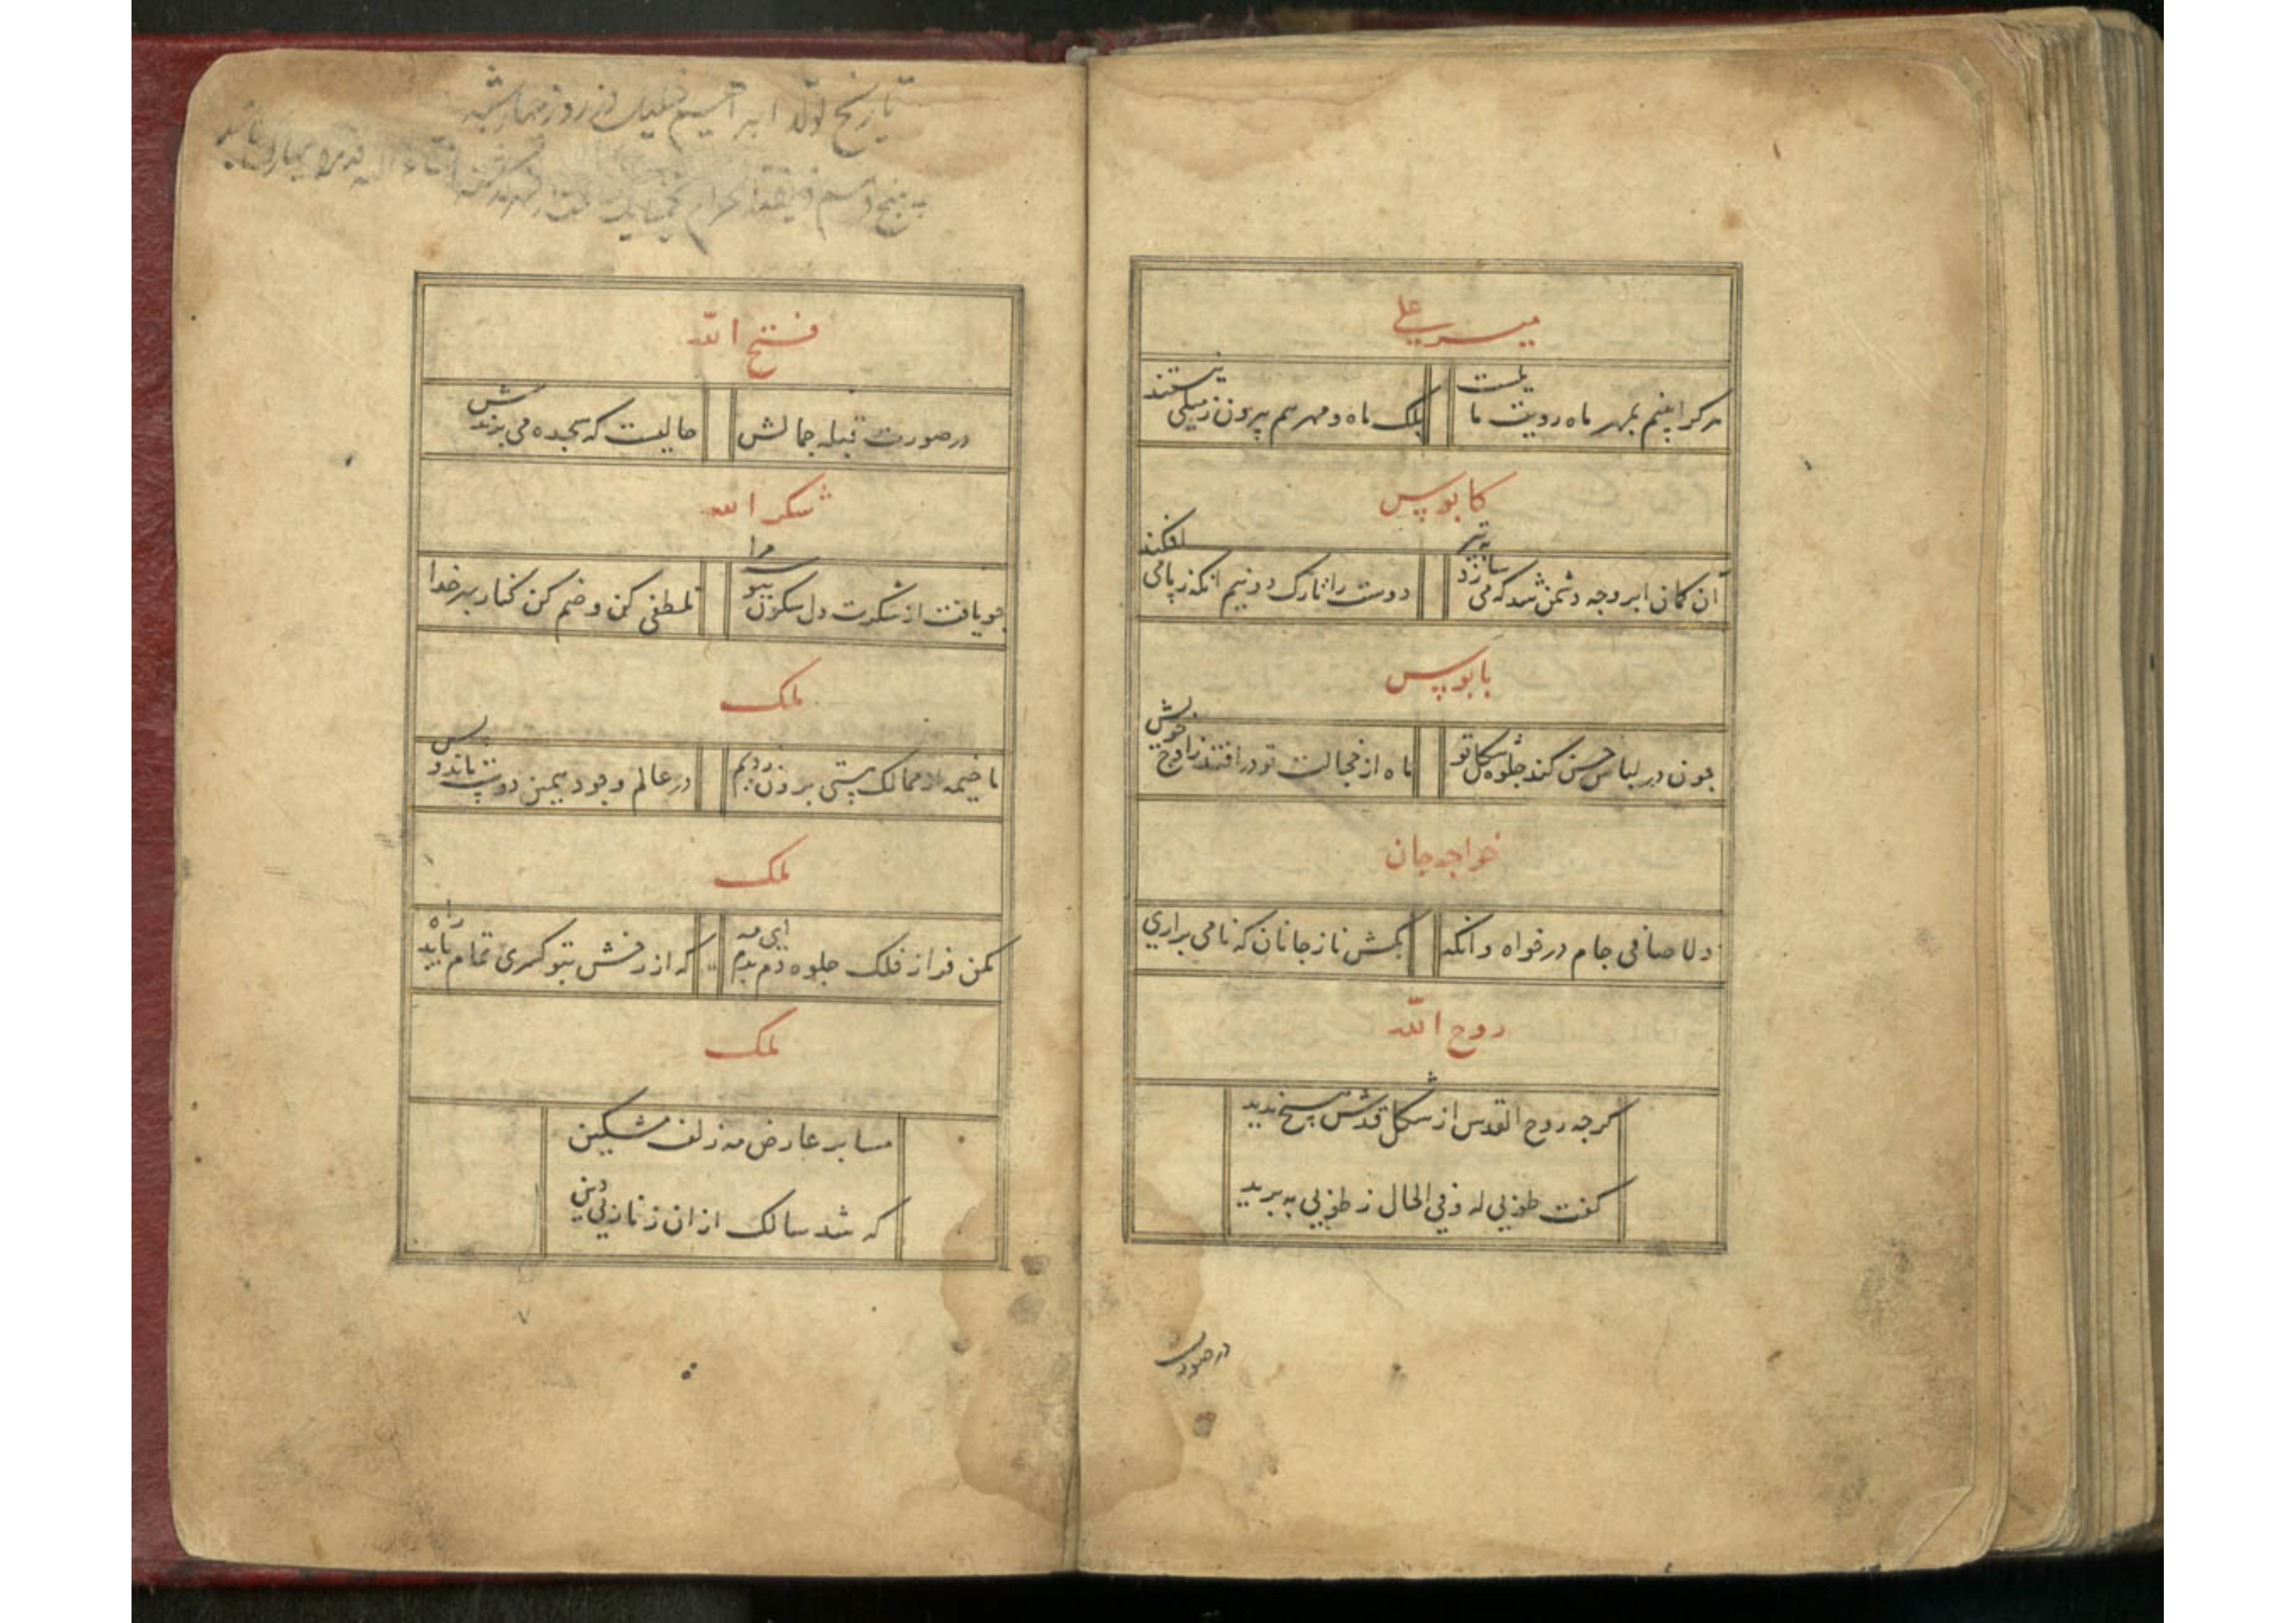 میر علی
هرکرا بینم بمهر ماه رویت مایلست
بلک ماه و مهر هم بیرون ز میلی نیستند
کابوس
آن کمان ابرو چه دشمن شد که می سازد به تیر
دوست را تارک دو نیم آنکه ز پا می افکند
بابوس
چون در لباس حسن کند جلوه شکل تو
ماه از خجالت تو در افتد ز اوج خویش
خواجه جان
دلا صافی جام در خواه وانکه
بکش ناز جانان که نامی براری
روح الله
کرچه روح القدس از شکل قدش هیچ ندید
کفت طوبی له و فی الحال ز طوبی ببرید
در صورت
تاریخ تولد ابراهیم خلیل در روز چهارشنبه
فتح الله
در صورت قبله جمالش
حالیست که سجده می برندش
شکر الله
چو یافت از شکرت دل سکون بیو مرا
تلطفی کن و ضم کن کنار بهر خدا
ملک
ما خیمه از ممالک هستی برون زدیم
در عالم وجود همین دوست ماند و بس
ملک
مکن فراز فلک جلوه دم بدم ای مه
که از رخش بتو کمری تمام یابد راه
ملک
مسا بر عارض مه زلف مشکین
که شد سالک ازان زنار بی دین